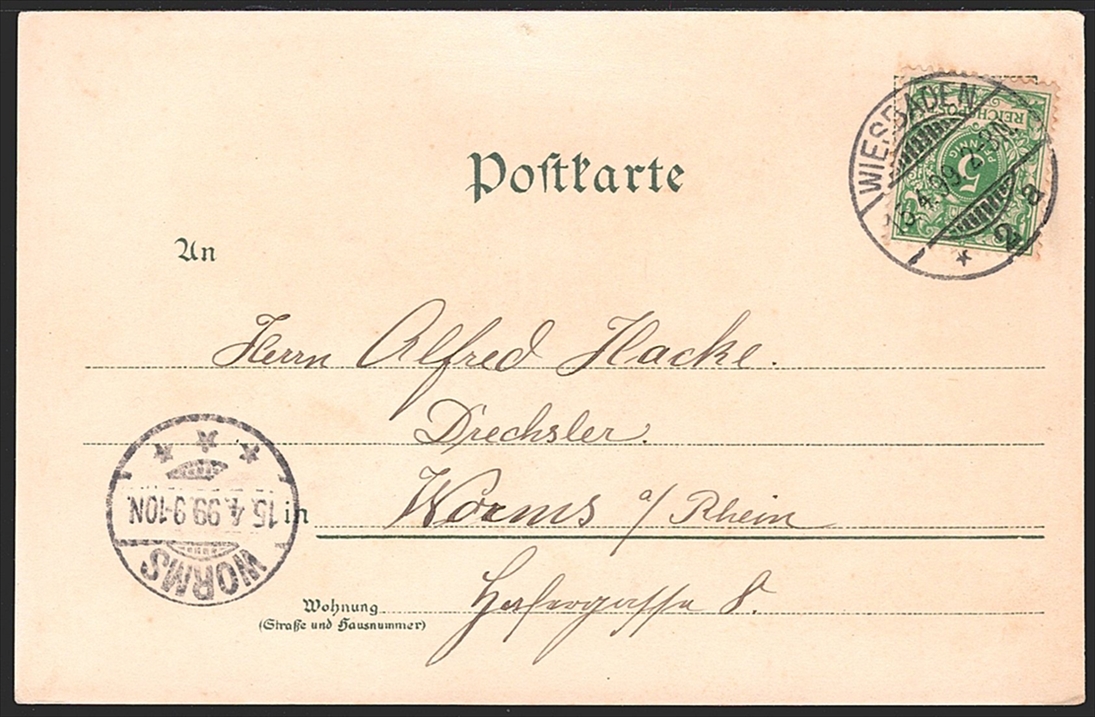 Postkarte
REICHSPOST
5
PFENNIG
WIESBADEN
4.99. 2-3N.
* 2 a
An
Herrn Alfred Hacke.
Drechsler.
in Worms a/ Rhein
Wohnung
(Straße und Hausnummer)
8.
WORMS
15.4.99.9-10N.
* * *